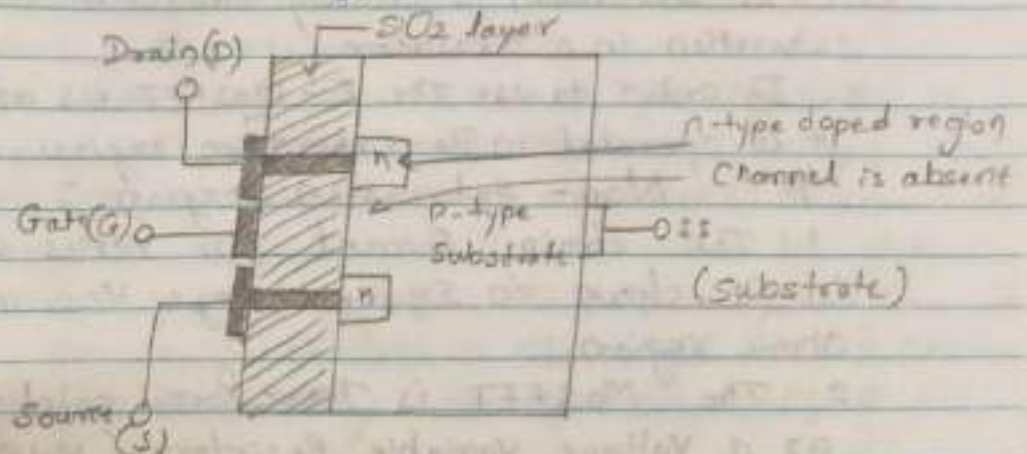 SiO2 layer
Drain(D)
n-type doped region
n
Channel is absent
Gate(G)
p-type
substrate
SS
(substrate)
n
Source
(S)